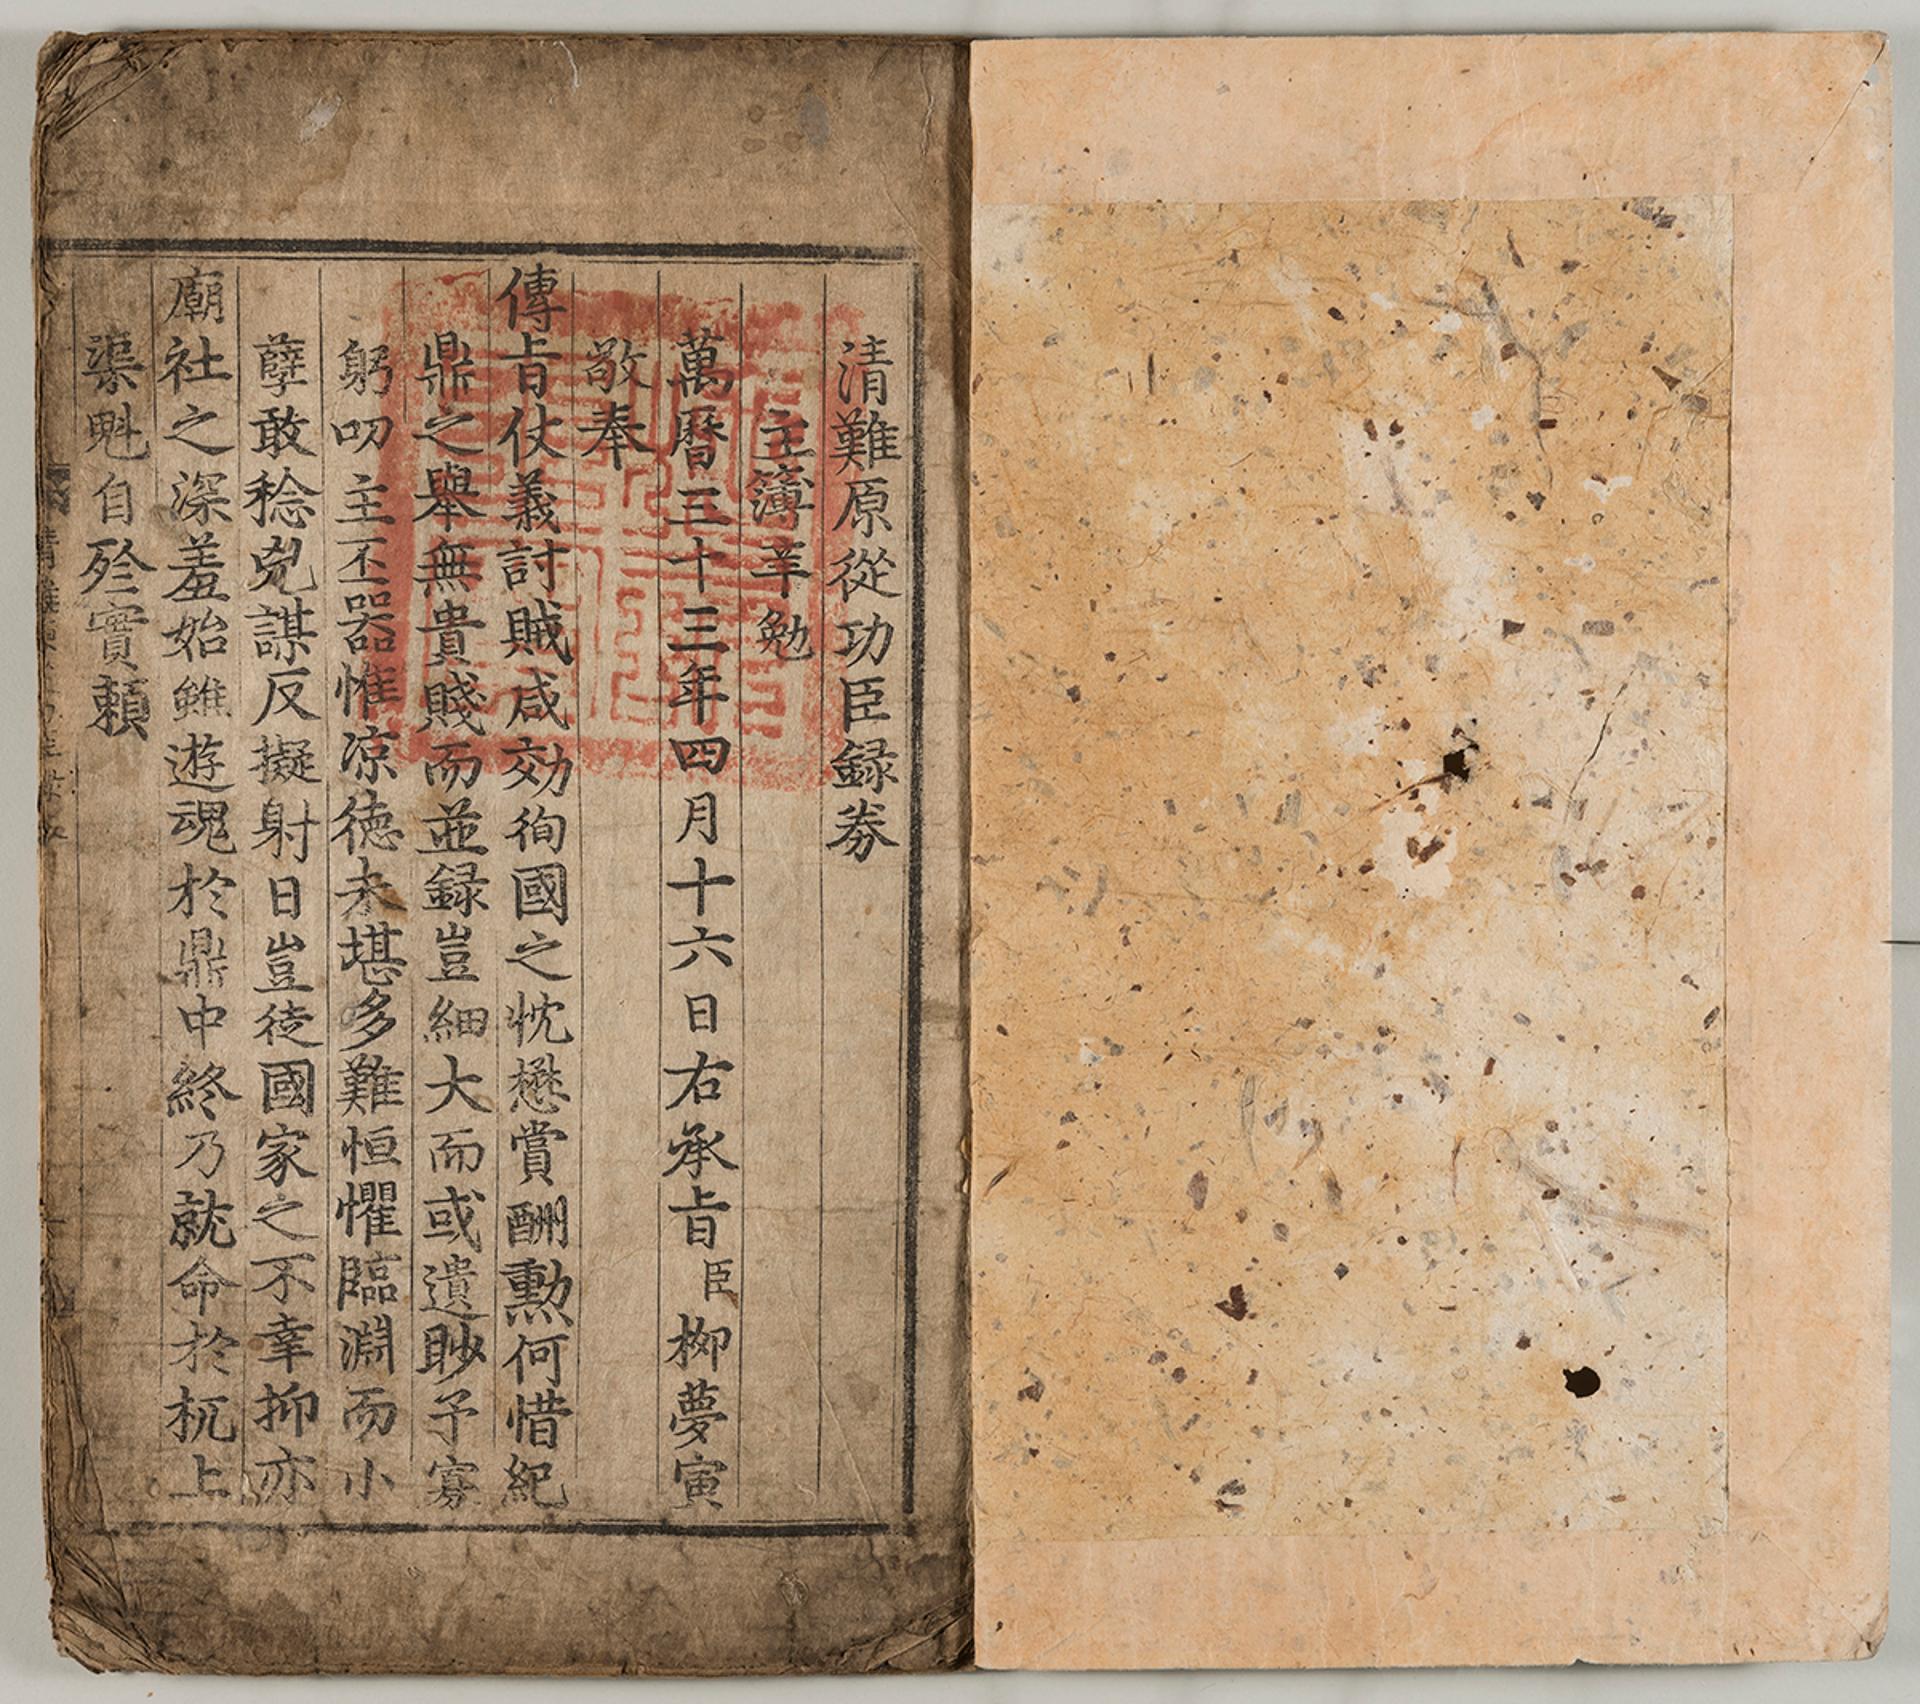 清難原從功臣録券
主簿羊勉
萬曆三十三年四月十六日右承旨臣柳夢寅
敬奉
傳旨仗義討賊咸効徇國之忱懋賞酬勳何惜紀
鼎之舉無貴賤而並録豈細大而或遺眇予寡
躬叨主丕器惟凉德未堪多難恒懼臨淵而小
孽敢稔兇謀反擬射日豈徒國家之不幸抑亦
廟社之深羞始雖遊魂於鼎中終乃就命於杌上
渠魁自殄實賴